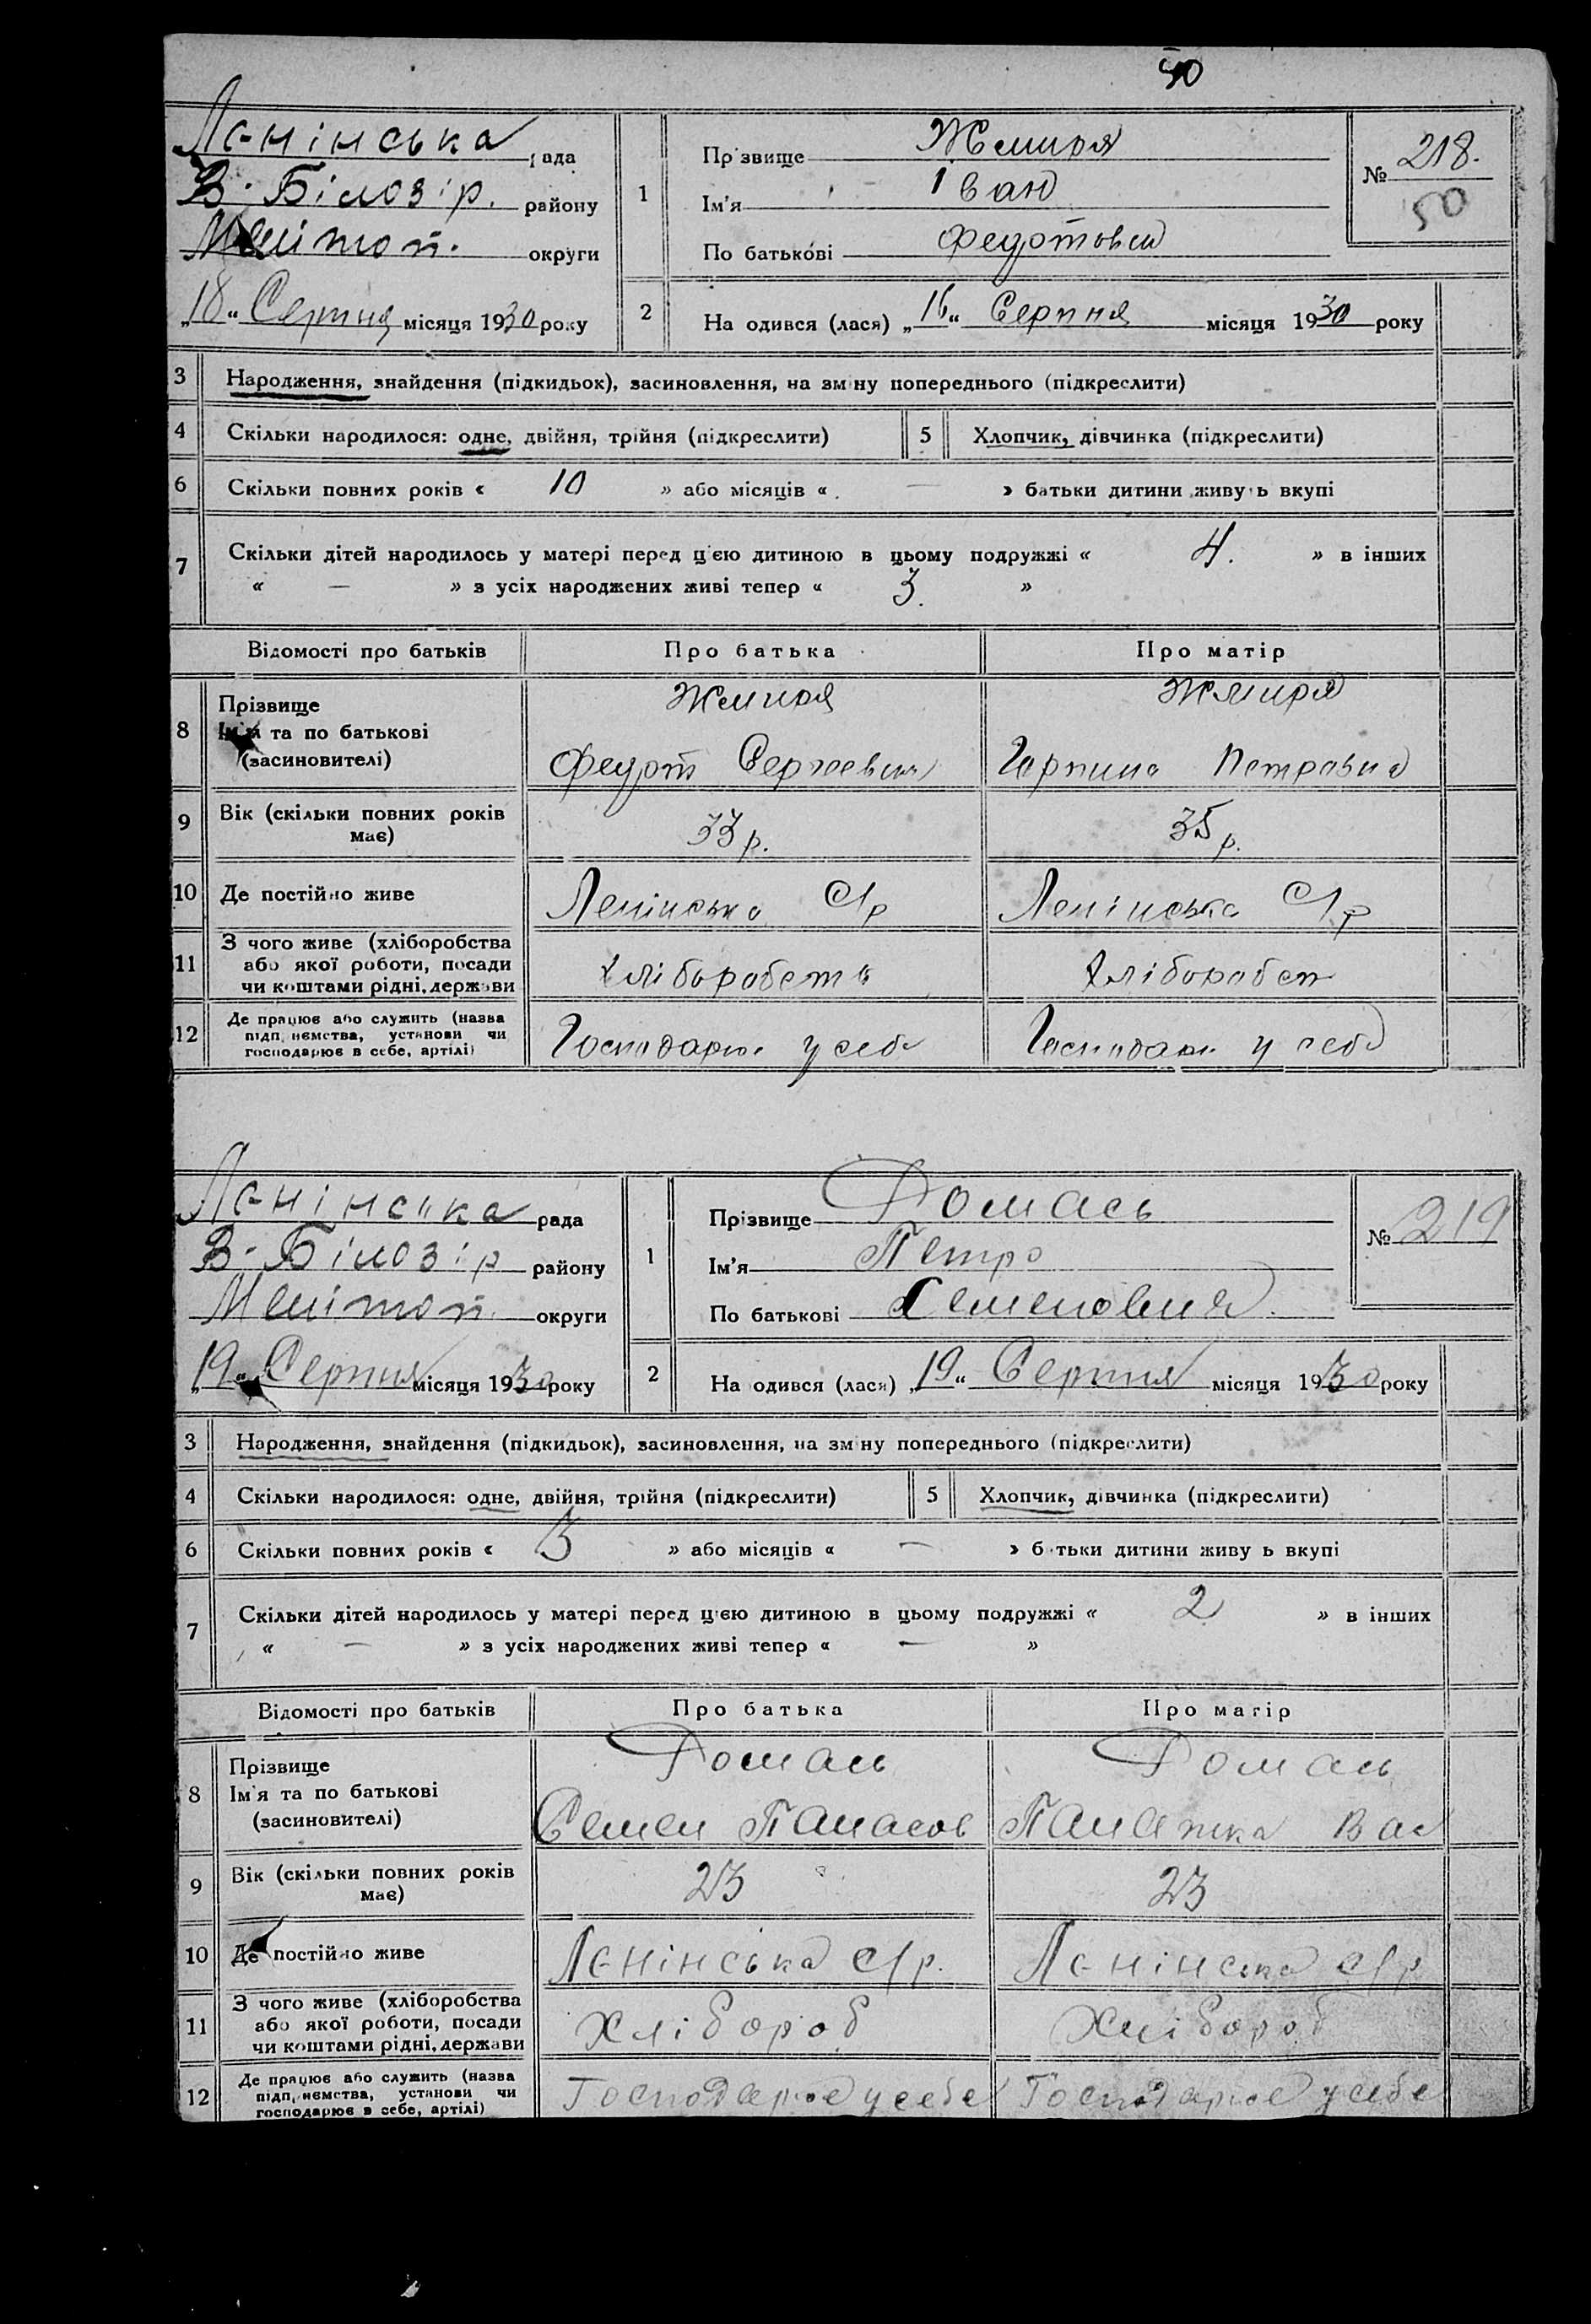 50
Ленінська рада
В. Білозір. району
Мелітоп. округи
„18“ Серпня місяця 1930 року
1 Прізвище Жмиря
Ім'я Іван
По батькові Федотович
№ 218.
50
2 На одився (лася) „16“ Серпня місяця 1930 року
3 Народження, знайдення (підкидьок), засиновлення, на зм ну попереднього (підкреслити)
4 Скільки народилося: одне, двійня, трійня (підкреслити) 5 Хлопчик, дівчинка (підкреслити)
6 Скільки повних років « 10 » або місяців « — » батьки дитини живуть вкупі
7 Скільки дітей народилось у матері перед цією дитиною в цьому подружжі « 4. » в інших
« — » з усіх народжених живі тепер « 3. »
Відомості про батьків Про батька Про матір
8 Прізвище Жмиря Жмиря
Ім'я та по батькові
(засиновителі) Федот Сергеевич Горпина Петровна
9 Вік (скільки повних років
має) 33 р. 35 р.
10 Де постійно живе Ленінська С/р Ленінська С/р
11 З чого живе (хліборобства
або якої роботи, посади
чи коштами рідні, держави хліборобств хліборобст
12 Де працює або служить (назва
підп, ємства, установи чи
господарює в себе, артілі) Господарює у себе Господарю у себе
Ленінська рада
В. Білозір району
Мелітоп. округи
„19“ Серпня місяця 1930 року
1 Прізвище Ромась
Ім'я Петро
По батькові Семенович
№ 219
2 На одився (лася) „19“ Серпня місяця 1930 року
3 Народження, знайдення (підкидьок), засиновлення, на зм ну попереднього (підкреслити)
4 Скільки народилося: одне, двійня, трійня (підкреслити) 5 Хлопчик, дівчинка (підкреслити)
6 Скільки повних років « 3 » або місяців « — » б тьки дитини живу ь вкупі
7 Скільки дітей народилось у матері перед цією дитиною в цьому подружжі « 2 » в інших
« — » з усіх народжених живі тепер « — »
Відомості про батьків Про батька Про матір
8 Прізвище Ромась Ромась
Ім'я та по батькові
(засиновителі) Семен Панасов Вас
9 Вік (скільки повних років
має) 23 23
10 Де постійно живе Ленінська с/р. Ленінська с/р
11 З чого живе (хліборобства
або якої роботи, посади
чи коштами рідні, держави Хлібороб Хлібороб
12 Де працює або служить (назва
підп, ємства, установи чи
господарює в себе, артілі) Господарює у себе Господарює у себе